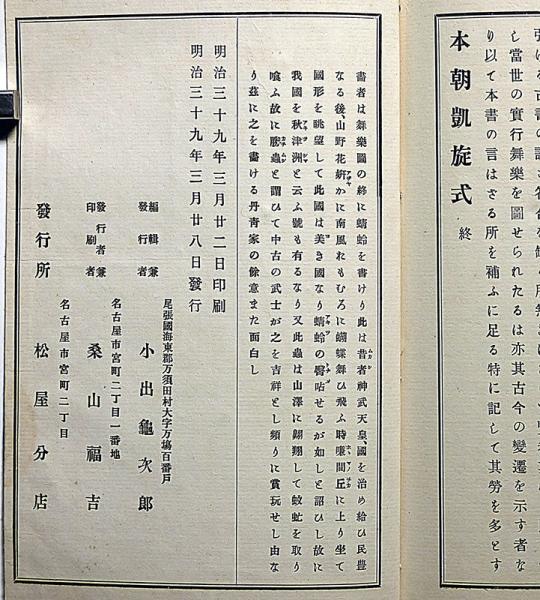 し當世の實行舞樂を圖せられたるは亦其古今の變遷を示す者な
り以て本書の言はさる所を補ふに足る特に記して其勞を多とす
本朝凱旋式 終
畵者は舞樂圖の終に蜻蛉を書けり此は昔者神武天皇、國を治め給ひ民豊
なる後、山野花妍かに南風れもむろに蝴蝶舞ひ飛ふ時嗛間丘に上り坐て
國形を眺望して此國は美き國なり蜻蛉の臀呫せるが如しと詔ひし故に
我國を秋津洲と云ふ號も有るなり又此蟲は山澤に翺翔して蚊虻を取り
喰ふ故に勝蟲と謂ひて中古の武士が之を吉祥とし頻りに賞玩せし由な
り茲に之を畵ける丹靑家の餘意また面白し
明治三十九年三月廿二日印刷
明治三十九年三月廿八日發行
尾張國海東郡万須田村大字万塲百番戸
編輯兼發行者 小出龜次郎
名古屋市宮町二丁目一番地
發行者兼印刷者 桑山福吉
名古屋市宮町二丁目
發行所 松屋分店